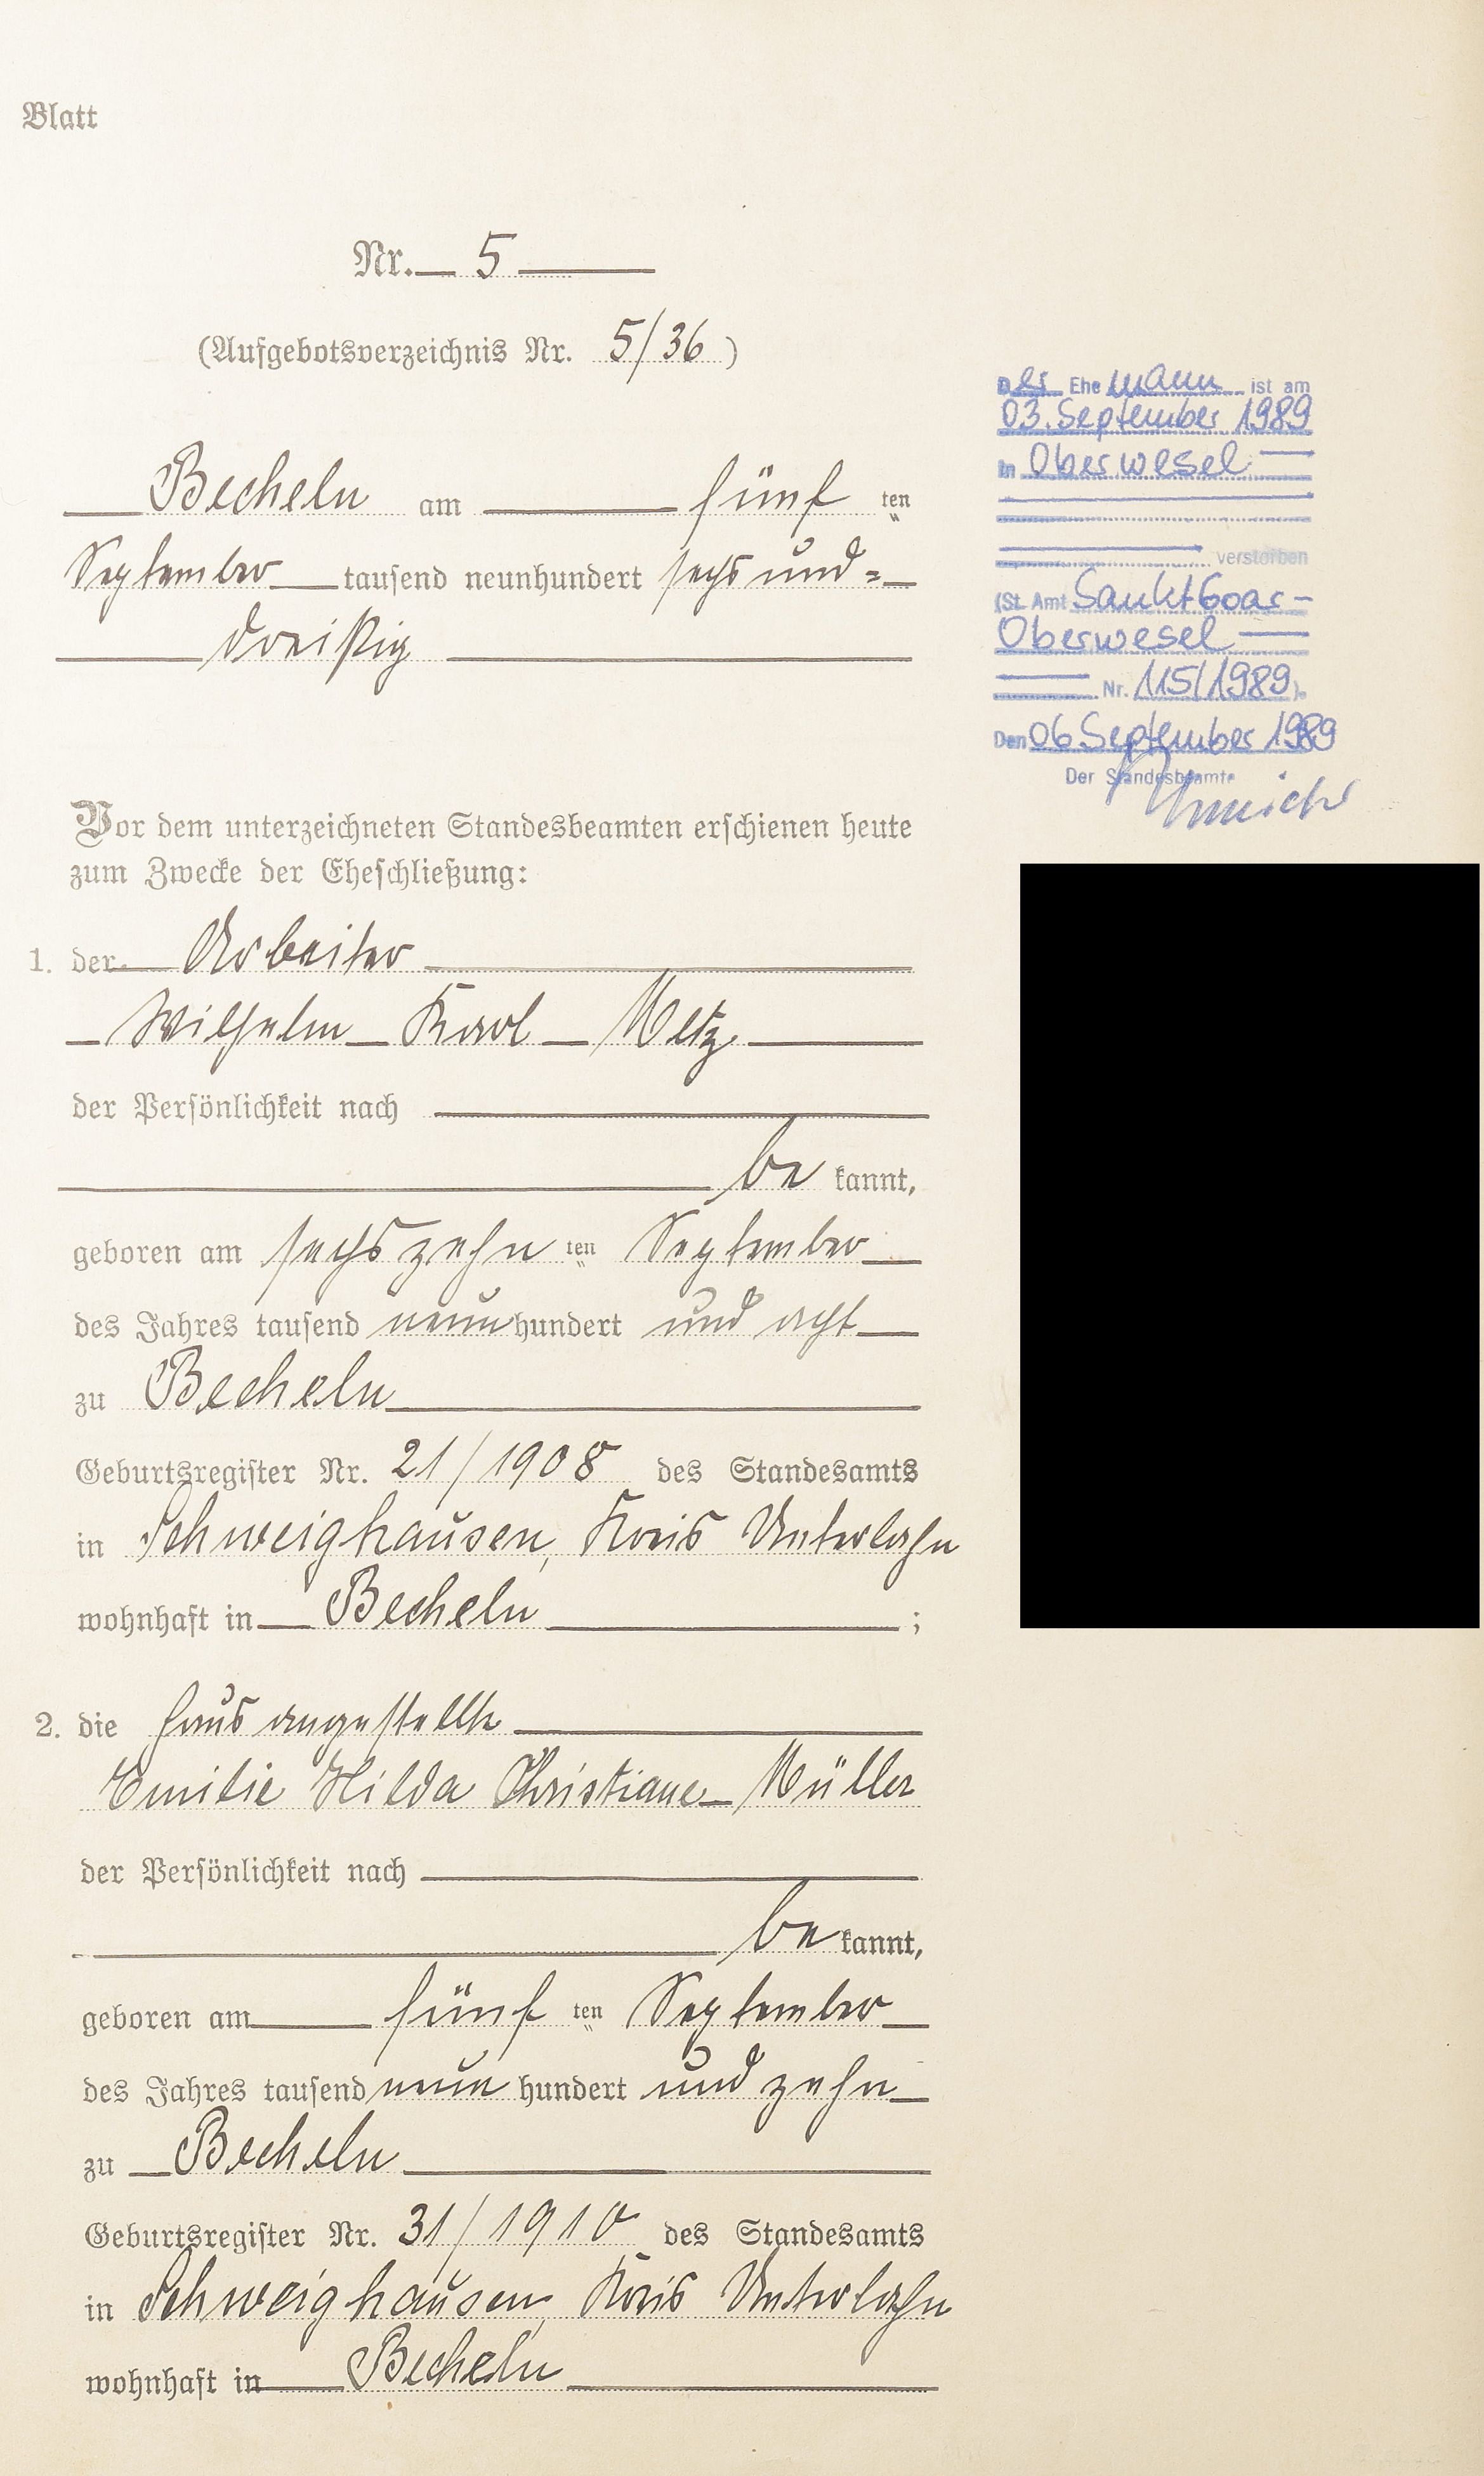 Blatt
Nr. 5
(Aufgebotsverzeichnis Nr. 5/36)
Becheln am fünf ten
September tausend neunhundert sechs und=
dreißig
Vor dem unterzeichneten Standesbeamten erschienen heute
zum Zwecke der Eheschließung:
1. der Arbeiter
Wilhelm Karl Metz
der Persönlichkeit nach
be kannt,
geboren am sechszehn ten September
des Jahres tausend neun hundert und acht
zu Becheln
Geburtsregister Nr. 21/1908 des Standesamts
in Schweighausen, Kreis Unterlahn
wohnhaft in Becheln ;
2. die Hausangestellte
Emilie Hilda Christiane Müller
der Persönlichkeit nach
be kannt,
geboren am fünf ten September
des Jahres tausend neun hundert und zehn
zu Becheln
Geburtsregister Nr. 31/1910 des Standesamts
in Schweighausen, Kreis Unterlahn
wohnhaft in Becheln
Der Ehe mann ist am
03. September 1989
in Oberwesel
verstorben
(St. Amt Sankt Goar-
Oberwesel
Nr. 115/1989).
Den 06 September 1989
Der Standesbeamte